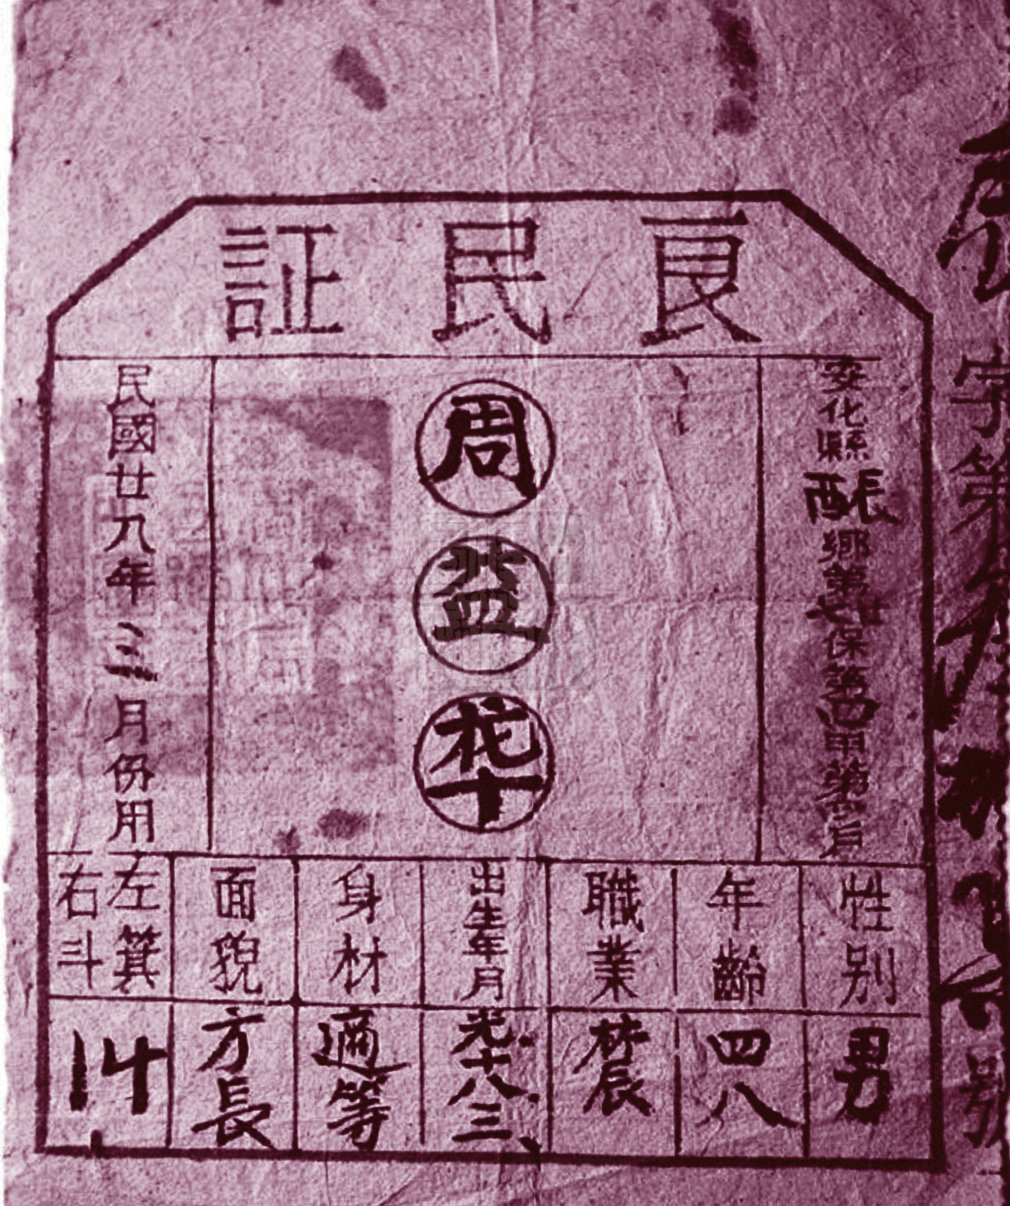 良民証
安化縣張酉鄉第廿七保第四甲第六戶
周益花十
民國廿八年三月份用
性别 男
年齡 四八
職業 農
出生年月 光十八.三、
身材 適等
面貌 方長
左箕右斗 14
字第
號